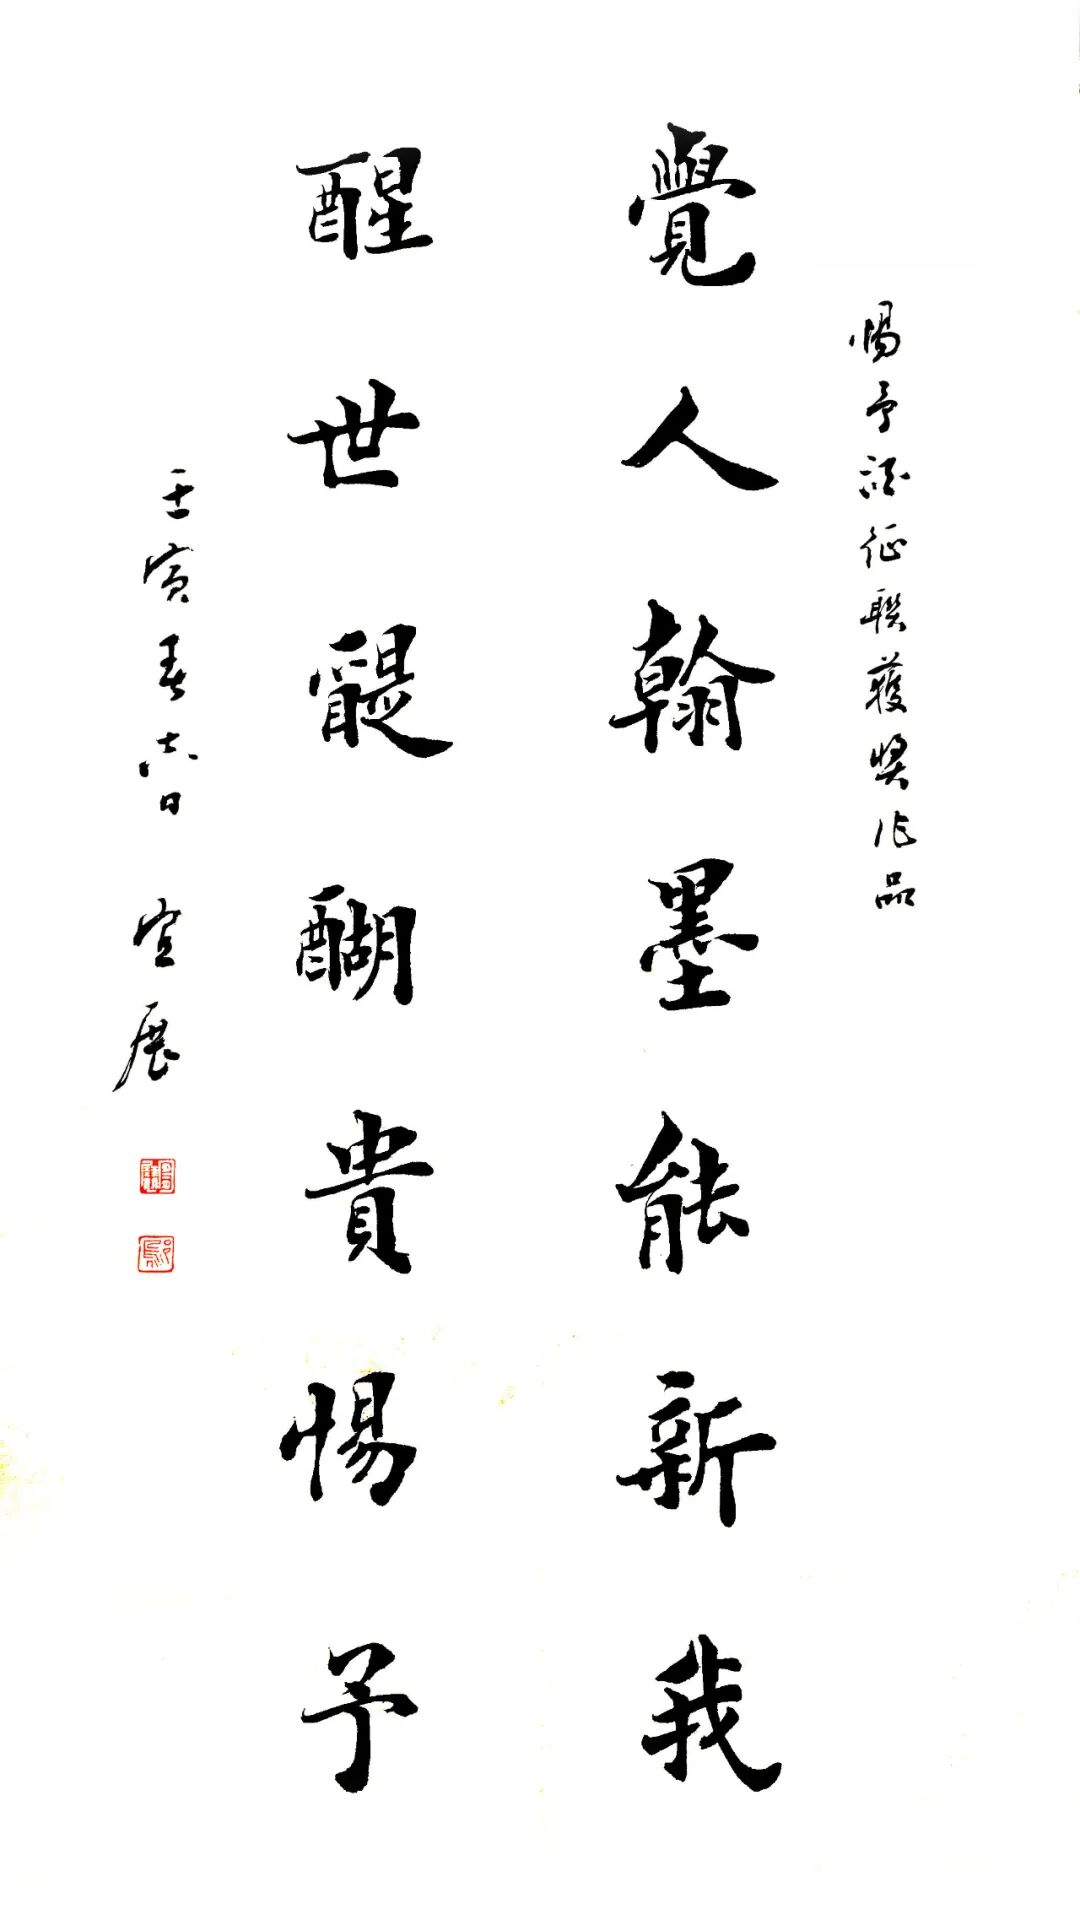 惕予酒征聯獲奬作品
覺人翰墨能新我
醒世醍醐貴惕予
壬寅春吉日 宣展